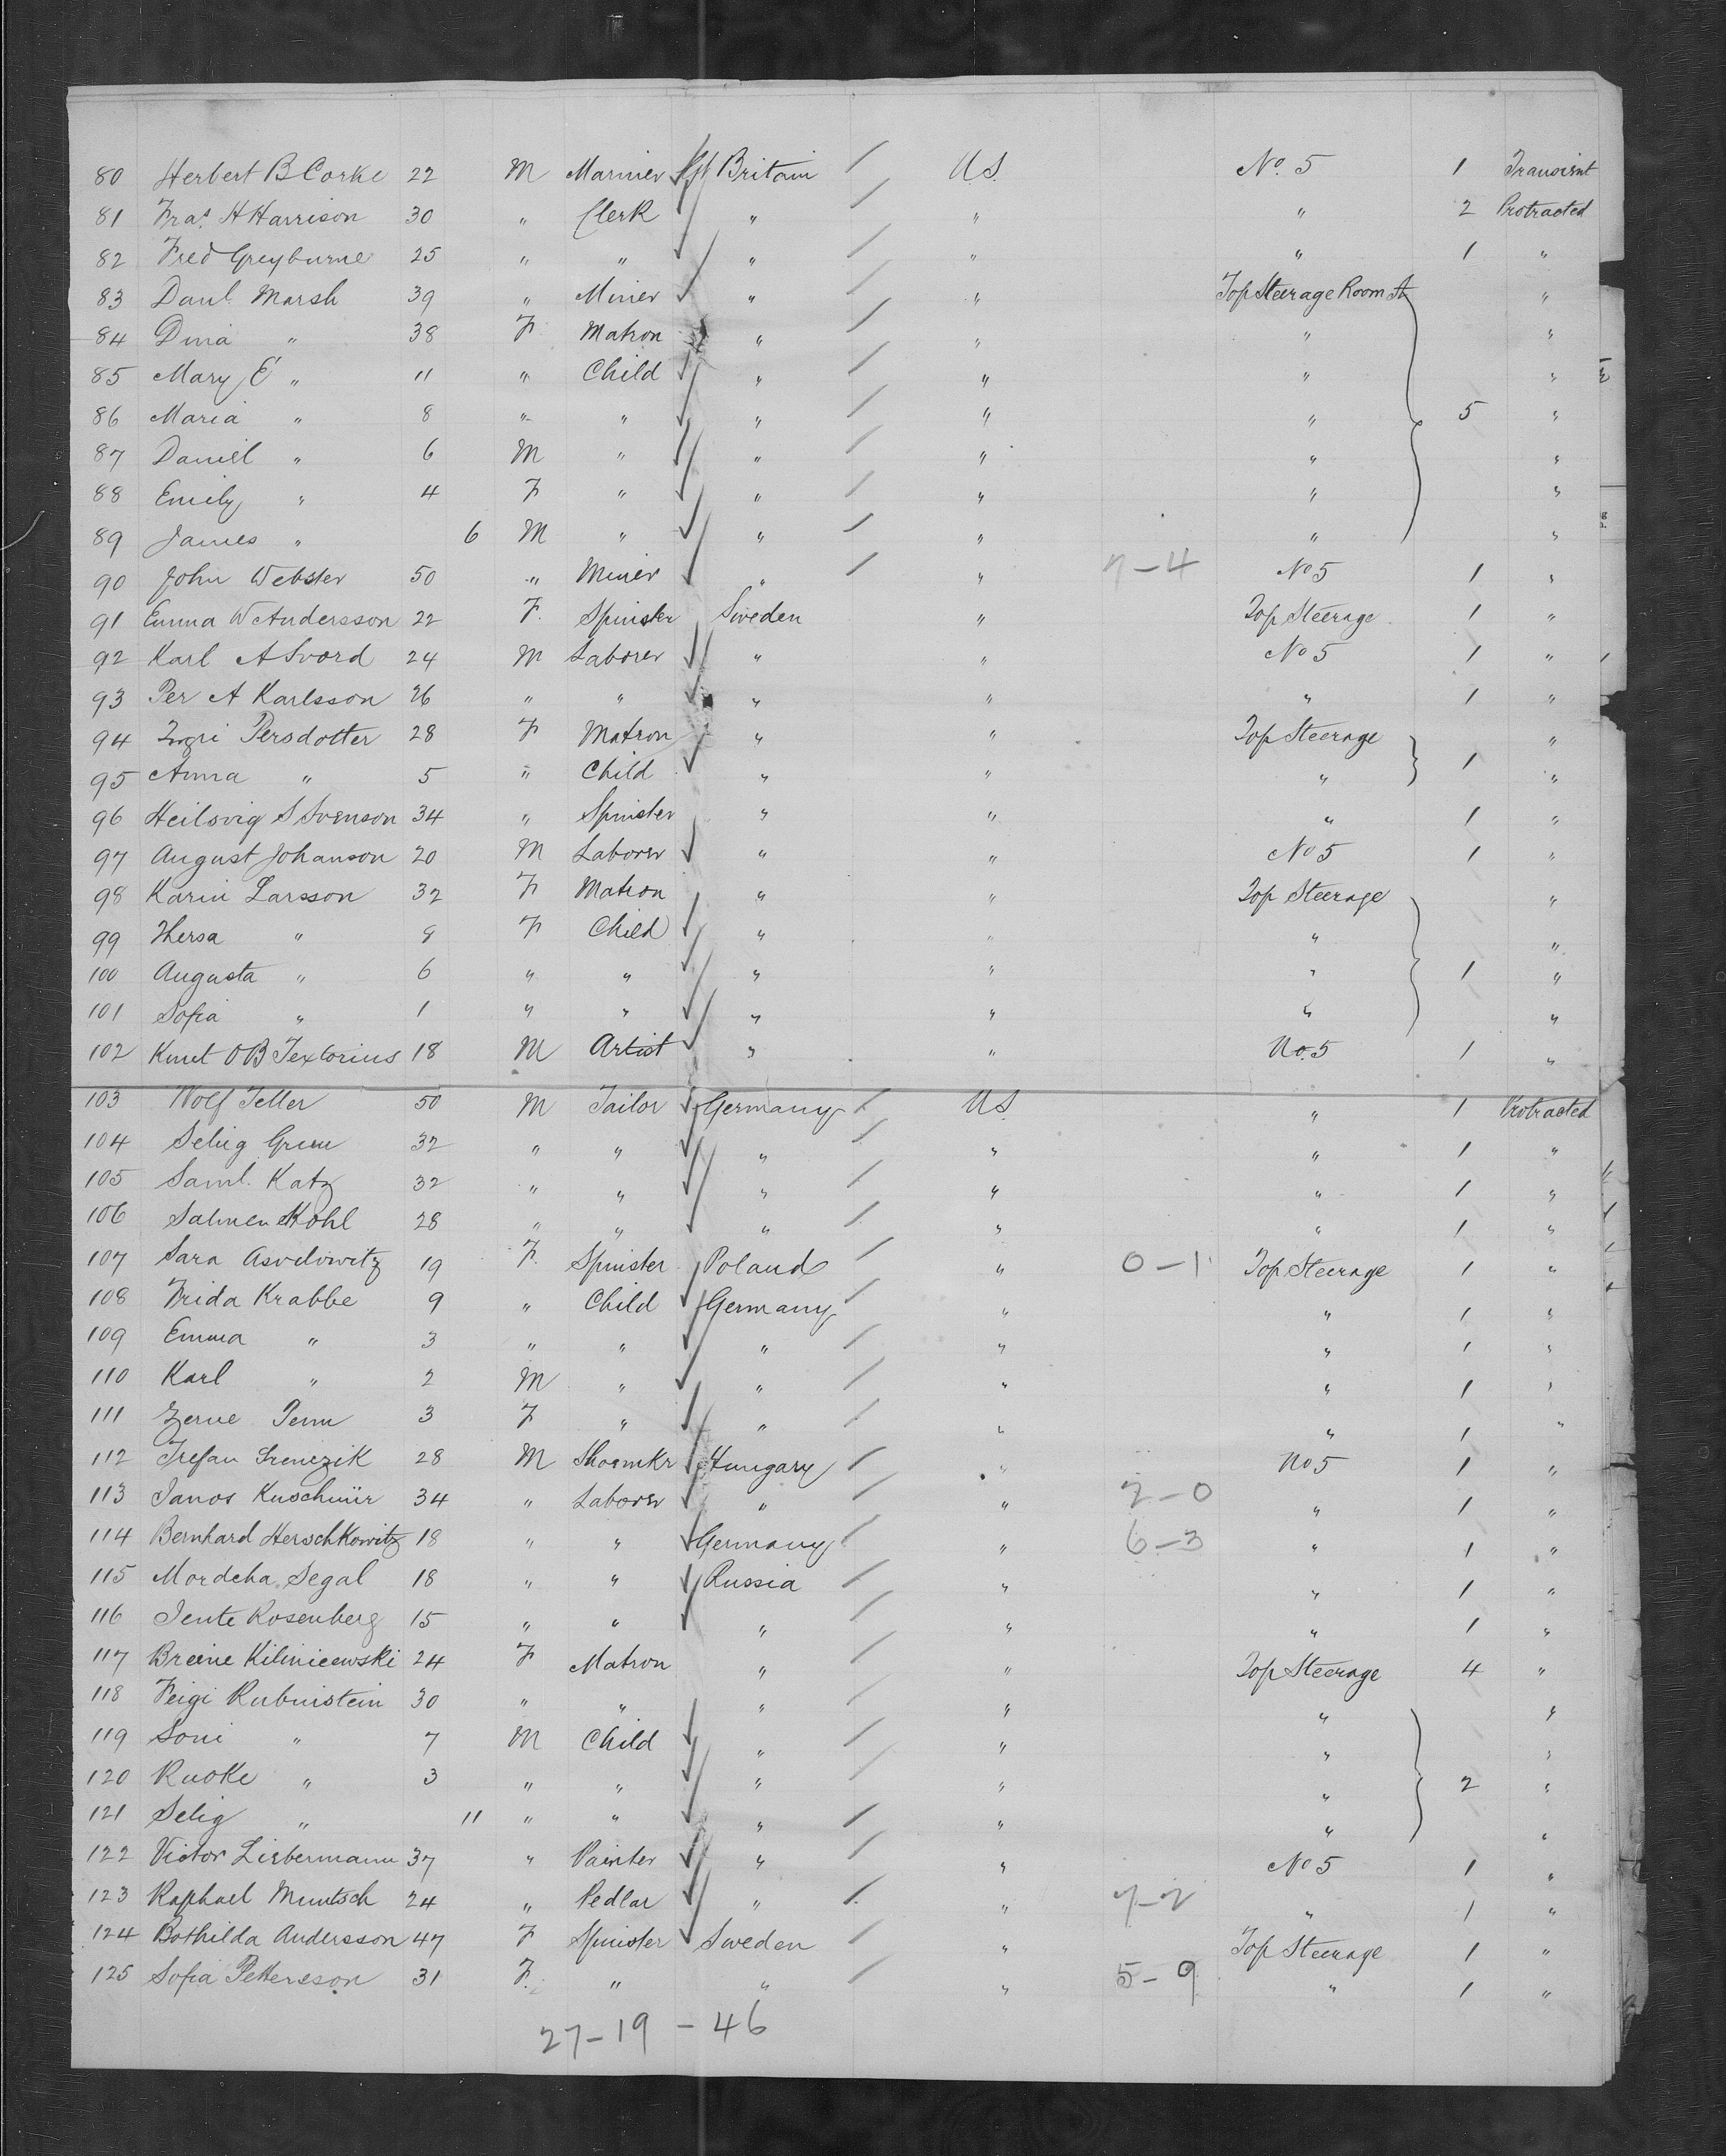 80 Herbert B Corke 22 M Mariner Gt Britain / U.S. No. 5 1 Transient
81 Fras. H Harrison 30 " Clerk " / " " 2 Protracted
82 Fred Greyburne 25 " " " / " " 1 "
83 Danl. Marsh 39 " Miner " / " Top Steerage Room A "
84 Dina " 38 F Matron " / " " "
85 Mary E " 11 " Child " / " " "
86 Maria " 8 " " " / " " 5 "
87 Daniel " 6 M " " / " " "
88 Emily " 4 F " " / " " "
89 James " 6 M " " / " " "
90 John Webster 50 " Miner " / " 7-4 No 5 1 "
91 Emma W Andersson 22 F. Spinster Sweden " Top Steerage 1 "
92 Karl A Svord 24 M Laborer " " No 5 1 "
93 Per A Karlsson 26 " " " " " 1 "
94 Persdotter 28 F Matron " " Top Steerage "
95 Anna " 5 " Child " " " 1 "
96 Heilsvig S Svenson 34 " Spinster " " " 1 "
97 August Johanson 20 M Laborer " " No 5 1 "
98 Karin Larsson 32 F Matron " " Top Steerage "
99 Thersa " 8 F Child " " " "
100 Augusta " 6 " " " " " 1 "
101 Sofia " 1 " " " " " "
102 Knut O B Textorius 18 M Artist " " No. 5 1 "
103 Wolf Teller 50 M Tailor Germany / U.S. " 1 Protracted
104 Selig Grun 32 " " " / " " 1 "
105 Saml. Katz 32 " " " / " " 1 "
106 Salmen Kohl 28 " " " / " " 1 "
107 Sara Asvilowitz 19 F. Spinster Poland / " 0-1 Top Steerage 1 "
108 Frida Krabbe 9 " Child Germany / " " 1 "
109 Emma " 3 " " " / " " 1 "
110 Karl " 2 M " " / " " 1 "
111 Zerne Penn 3 F " " / " " 1 "
112 Trefan Srenezik 28 M Shoemkr Hungary / " No 5 1 "
113 Janos Kuschniir 34 " Laborer " / " 2-0 " 1 "
114 Bernhard Herschkowitz 18 " " Germany / " 6-3 " 1 "
115 Mordcha Segal 18 " " Russia / " " 1 "
116 Jente Rosenberg 15 " " " / " " 1 "
117 Breine Kiliniecwski 24 F Matron " / " Top Steerage 4 "
118 Feigi Rubinstein 30 " " " / " " "
119 Soni " 7 M Child " / " " "
120 Ruoke " 3 " " " / " " 2 "
121 Selig " 11 " " " / " " "
122 Victor Liebermann 37 " Painter " / " No 5 1 "
123 Raphael Muntsch 24 " Pedlar " / " 7-2 " 1 "
124 Bothilda Andersson 47 F Spinster Sweden / " Top Steerage 1 "
125 Sofia Petterson 31 F. " " / " 5-9 " 1 "
27-19-46